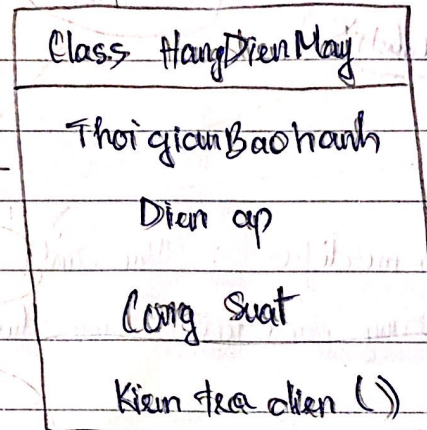 Class HangDienMay
ThoigianBaohanh
Dien ap
Cong suat
Kiem tra dien ()